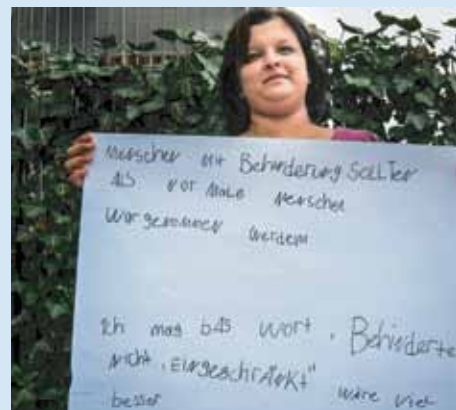 Menschen mit Behinderung Sollten
als normale Menschen
Wargenommen werdem
Ich mag bas wort „Behinderte
nicht „Eingeschränkt“
wäre viel
besser